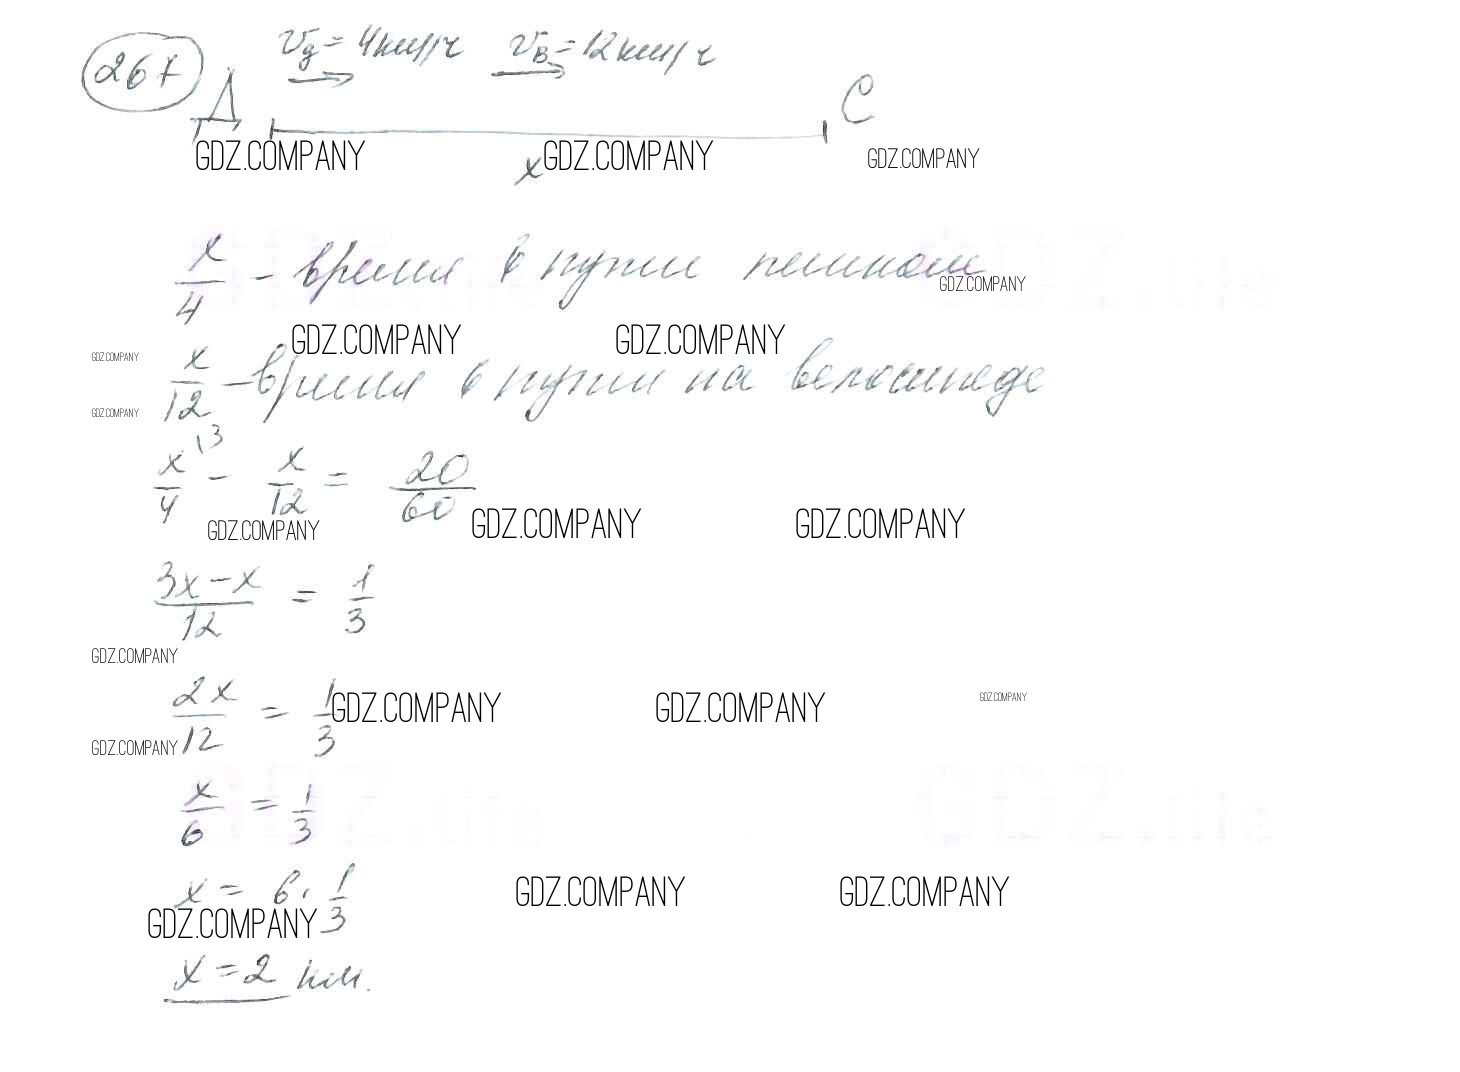 267 Д v_д = 4 км/ч v_в = 12 км/ч С
GDZ.COMPANY x GDZ.COMPANY GDZ.COMPANY
x/4 - время в пути пешком
GDZ.COMPANY
GDZ.COMPANY GDZ.COMPANY
GDZ.COMPANY
x/12 - время в пути на велосипеде
GDZ.COMPANY
x/4 \3 - x/12 = 20/60
GDZ.COMPANY GDZ.COMPANY GDZ.COMPANY
3x - x/12 = 1/3
GDZ.COMPANY
2x/12 = 1/3 GDZ.COMPANY GDZ.COMPANY GDZ.COMPANY
GDZ.COMPANY
GDZ.life GDZ.life
x/6 = 1/3
x = 6 · 1/3
GDZ.COMPANY GDZ.COMPANY GDZ.COMPANY
x = 2 км.